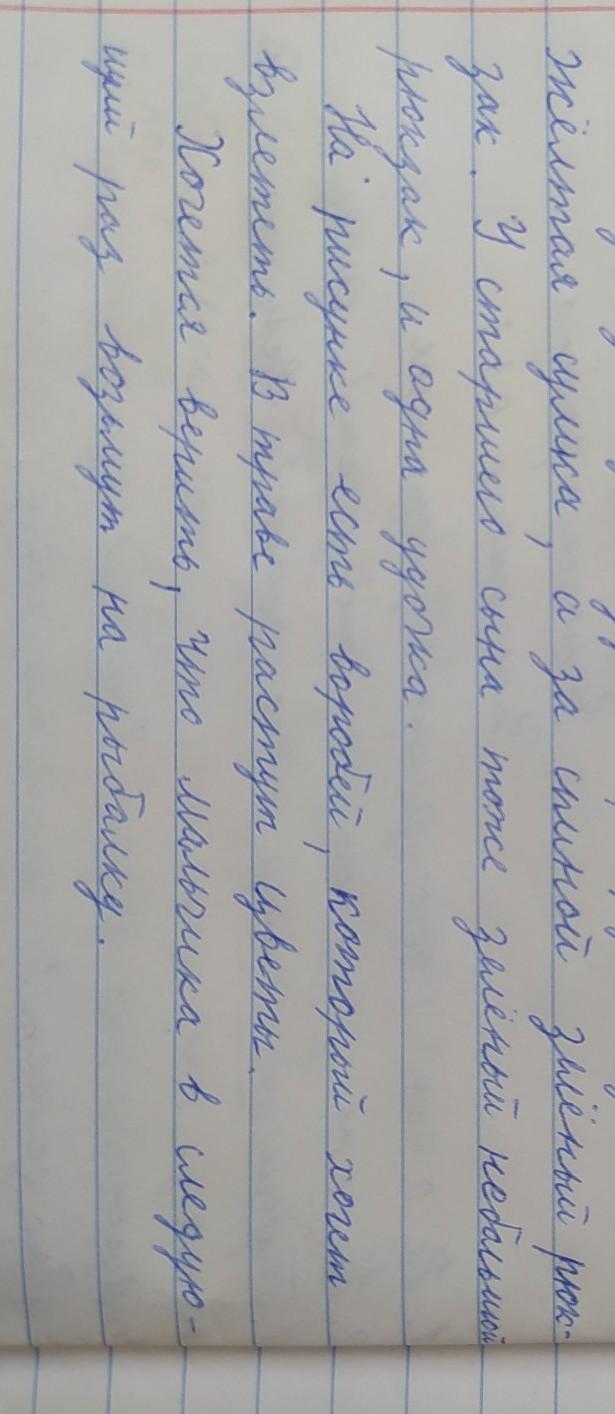 жёлтая сумка, а за спиной зелёный рюк-
зак. У старшего сына тоже зелёный небольшой
рюкзак, и одна удочка.
На рисунке есть воробей, который хочет
взлететь. В траве растут цветы.
Хочется верить, что мальчика в следую-
щий раз возьмут на рыбалку.